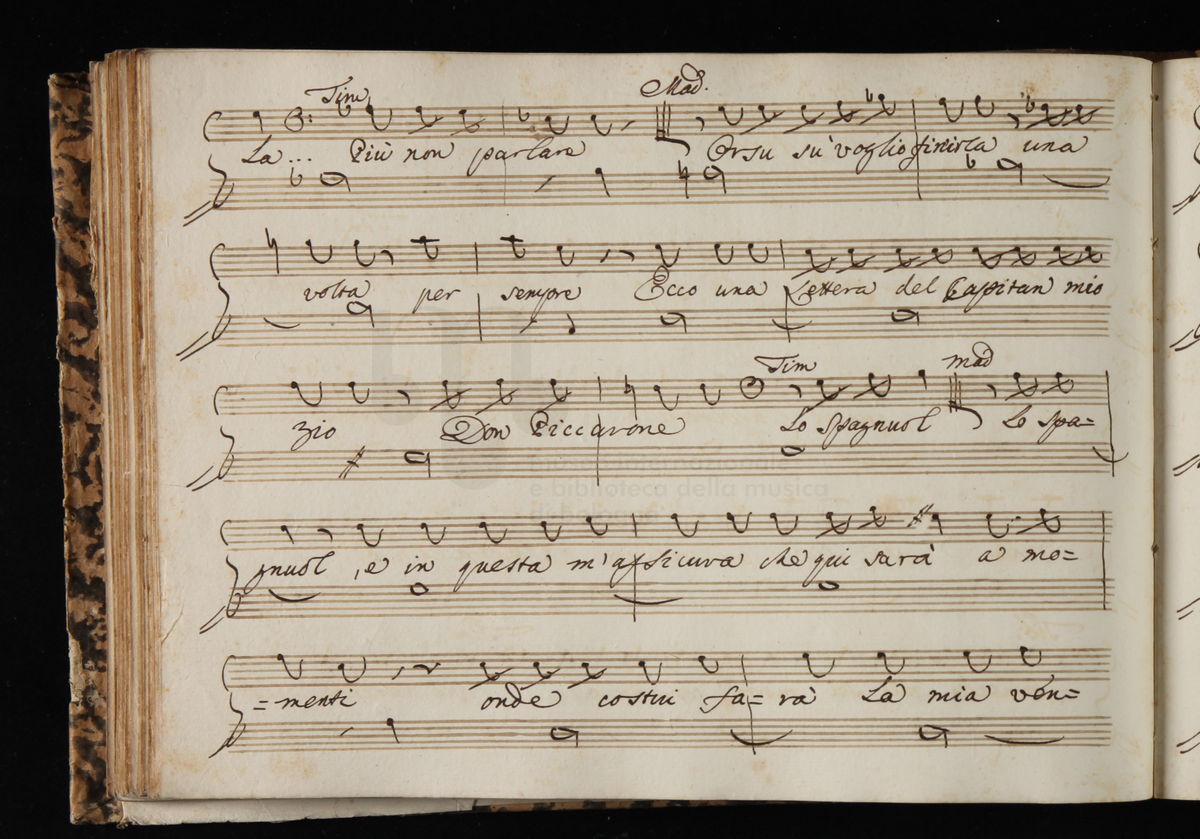 Tim Mad.
La... Più non parlare Orsu su voglio finirla una
volta per sempre Ecco una Lettera del Capitan mio
Tim mad
zio Don Piccarone Lo spagnuol Lo spa=
gnuol, e in questa m'assicura che qui sarà a mo=
=menti onde costui fa=rà La mia ven=
e biblioteca della musica